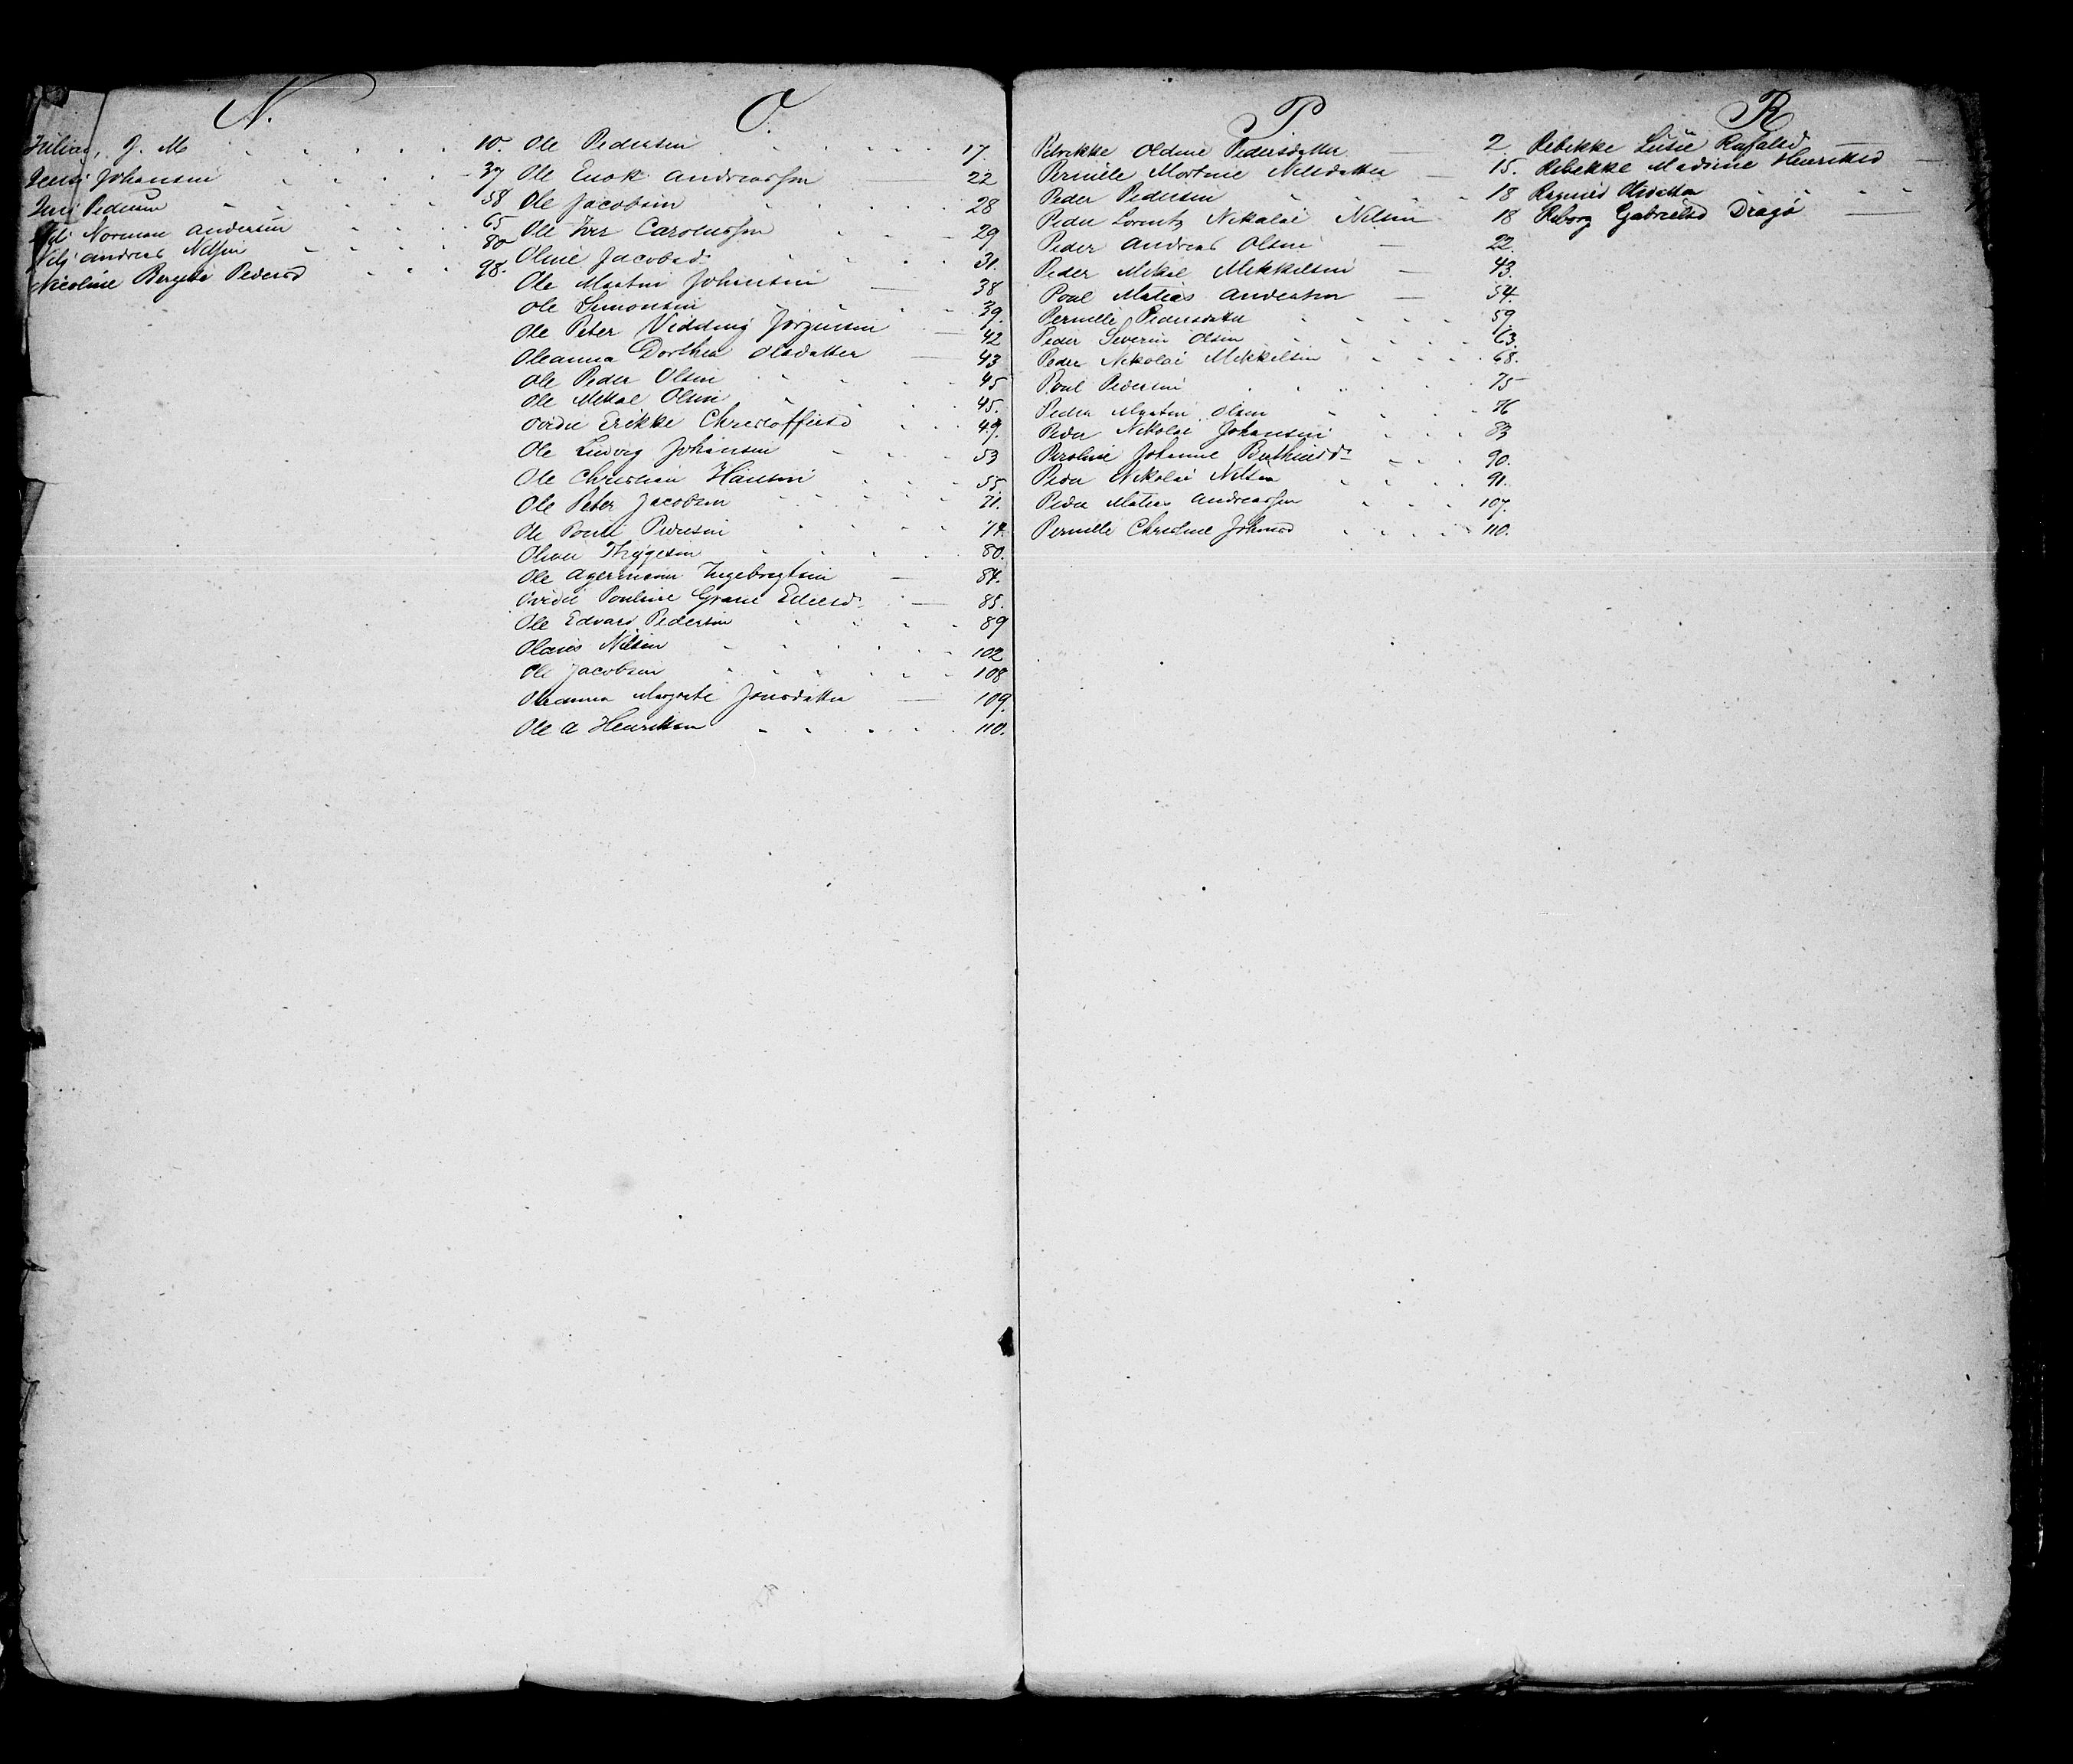 N.
J. M 10.
Johansen 37
Pedersen 58
Nils Norman Andersen 65
Nils Andreas Nilsen 80
Nicoline Bergite Pedersd 98.
O.
Ole Pedersen 17.
Ole Enok Andreassen 22
Ole Jacobsen 28
Ole Iver Carolussen 29
Oline Jacobsd. 31.
Ole Martin Johansen 38
Ole Simonsen 39.
Ole Peter Vedding Jørgensen 42
Oleanna Dorthea Olsdatter 43
Ole Peder Olsen 45
Ole Mikal Olsen 45.
Ovidie Erikke Christoffersd 49.
Ole Ludvig Johansen 53
Ole Christian Hansen 55.
Ole Peter Jacobsen 71.
Ole Poulli Pedersen 74.
Oliver Thygesen 80.
Ole Agerinson Ingebregtsen 84.
Ovidie Pouline Grane Edissd. 85.
Ole Edvard Pedersen 89
Olaus Nilsen 102
Ole Jacobsen 108
Oleanna Margrete Jonsdatter 109.
Ole A Henriksen 110.
P
Petrikke Oldine Pedersdatter 2
Pernille Mortine Nilsdatter 15.
Peder Pedersen 18
Peder Lorentz Nikolai Nilsen 18
Peder Andreas Olsen 22
Peder Mikal Mikkelsen 43.
Poul Matias Andersen 54.
Pernille Pedersdatter 59.
Peder Severin Olsen 63.
Peder Nikolai Mikkelsen 68.
Poul Pedersen 75
Peder Martin Olsen 76
Peder Nikolai Johansen 83
Peroline Johanne Berthiusd. 90.
Peder Nikolai Nilsen 91.
Peder Matias Andreassen 107.
Pernille Christine Johnsd 110.
R
Rebekke Lusie Rafaelsd
Rebekke Madrine Henriksd
Ragnild Olsdatter
Reborg Gabrielsd Dragø